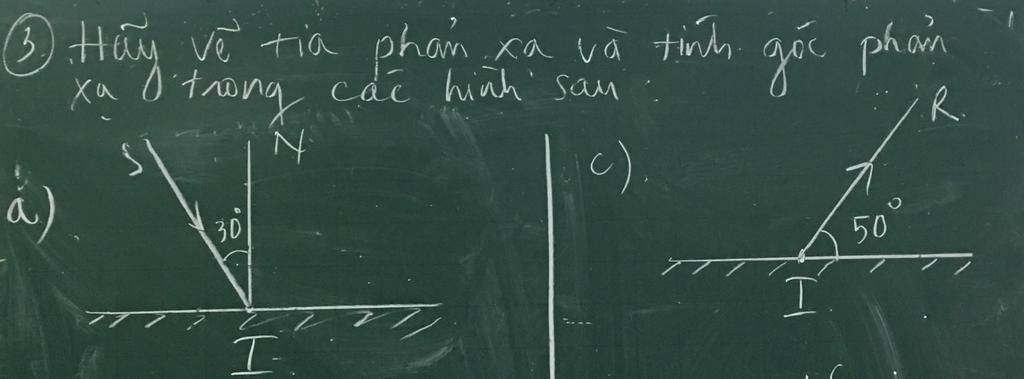 ③. Hãy vẽ tia phản xạ và tính góc phản
xạ trong các hình sau
a)
S
N
30°
I
c)
R
50°
I